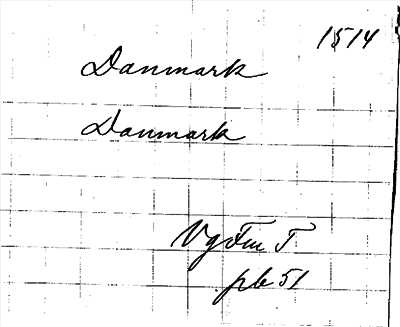 1514
Danmark
Danmark
Vg Fm T
pb 51